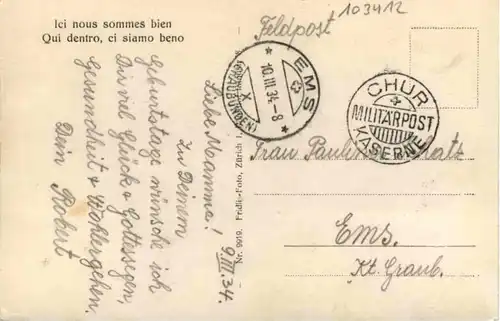 Ici nous sommes bien
Qui dentro, ci siamo beno
9.III.34.
Liebe Mamma!
Zu Deinem
Geburtstage wünsche ich
Dir viel Glück & Gottessegen,
Gesundheit & Wohlergehen.
Dein Robert
Nr. 9919. Fridli-Foto, Zürich 1.
103412
Feldpost
EMS
10.III.34-8
X
(GRAUBÜNDEN)
CHUR
MILITÄRPOST
KASERNE
Frau Pauline
Ems.
Kt. Graub.